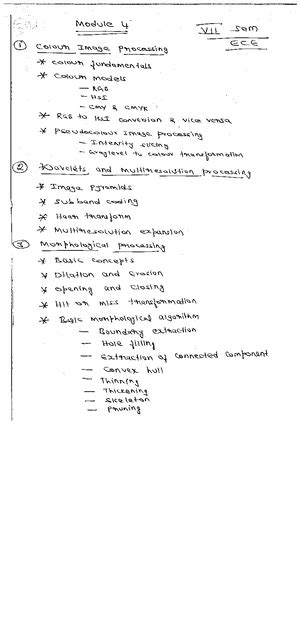 Module 4
VII Sem
ECE
① Colour Image Processing
* Colour fundamentals
* Colour models
— RGB
— HSI
— CMY & CMYK
* RGB to HSI conversion & vice versa
* Pseudocolour image processing
— Intensity slicing
— Graylevel to colour transformation
② Wavelets and Multiresolution processing
* Image Pyramids
* Subband coding
* Haar transform
* Multiresolution expansion
③ Morphological processing
* Basic concepts
* Dilation and Erosion
* Opening and Closing
* Hit or miss transformation
* Basic morphological algorithm
— Boundary extraction
— Hole filling
— Extraction of connected component
— Convex hull
— Thinning
— Thickening
— Skeleton
— Pruning